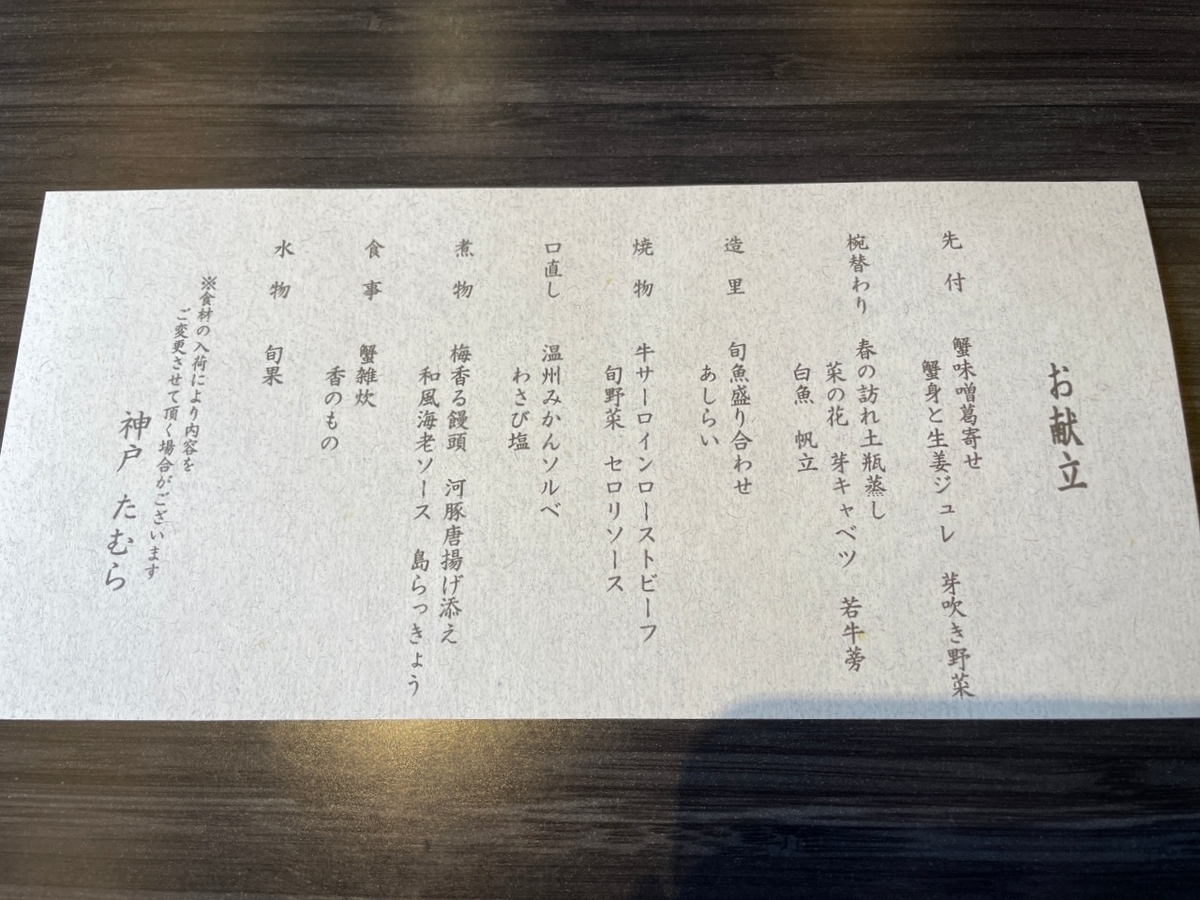 お献立
先付 蟹味噌葛寄せ
蟹身と生姜ジュレ 芽吹き野菜
椀替わり 春の訪れ土瓶蒸し
菜の花 芽キャベツ 若牛蒡
白魚 帆立
造里 旬魚盛り合わせ
あしらい
焼物 牛サーロインローストビーフ
旬野菜 セロリソース
口直し 温州みかんソルベ
わさび塩
煮物 梅香る饅頭 河豚唐揚げ添え
和風海老ソース 島らっきょう
食事 蟹雑炊
香のもの
水物 旬果
※食材の入荷により内容を
ご変更させて頂く場合がございます
神戸 たむら